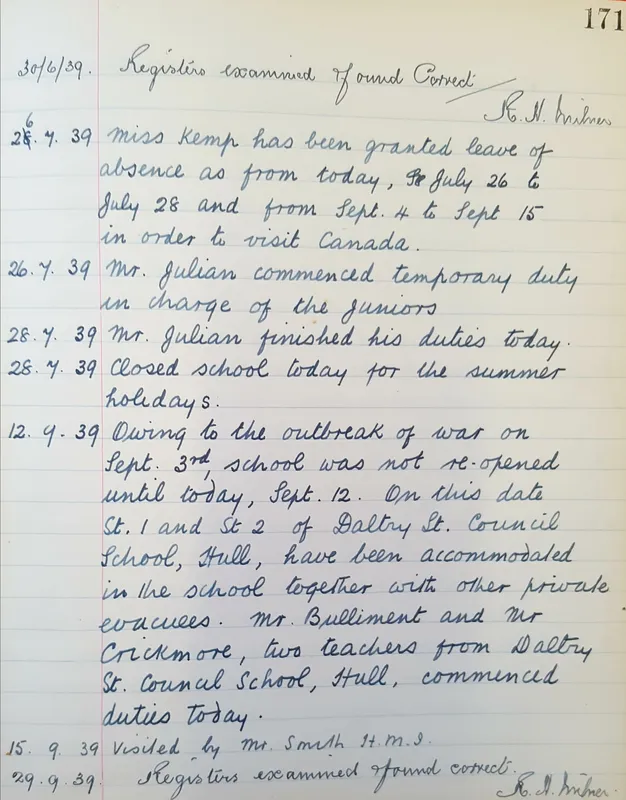 171
30/6/39. Registers examined & found Correct
R. N. Milner
26. 7. 39 Miss Kemp has been granted leave of
absence as from today, July 26 to
July 28 and from Sept. 4 to Sept 15
in order to visit Canada.
26. 7. 39 Mr. Julian commenced temporary duty
in charge of the Juniors
28. 7. 39 Mr. Julian finished his duties today.
28. 7. 39 Closed school today for the summer
holidays.
12. 9. 39 Owing to the outbreak of war on
Sept. 3rd, school was not re-opened
until today, Sept. 12. On this date
St. 1 and St 2 of Daltry St. Council
School, Hull, have been accommodated
in the school together with other private
evacuees. Mr. Bulliment and Mr
Crickmore, two teachers from Daltry
St. Council School, Hull, commenced
duties today.
15. 9. 39 Visited by Mr. Smith H.M.I.
29. 9. 39. Registers examined & found correct.
R. N. Milner.